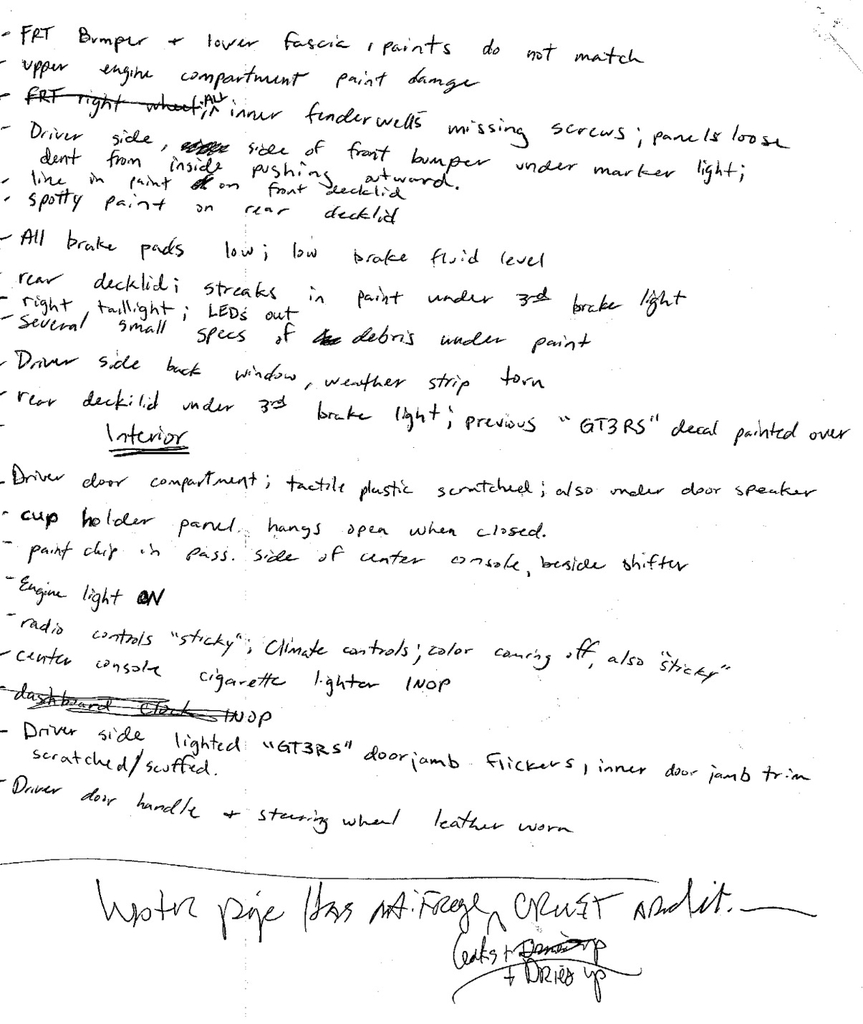 - FRT Bumper + lower fascia, paints do not match
- upper engine compartment paint damge
- FRT right wheel; ALL inner fenderwells missing screws; panels loose
- Driver side, side of front bumper under marker light;
dent from inside pushing outward.
- line in paint on front decklid
- spotty paint on rear decklid
- All brake pads low; low brake fluid level
- rear decklid; streaks in paint under 3rd brake light
- right taillight; LEDs out
- Several small specs of debris under paint
- Driver side back window, weather strip torn
- rear decklid under 3rd brake light; previous "GT3RS" decal painted over
- Interior
- Driver door compartment; tactile plastic scratched; also under door speaker
- cup holder panel hangs open when closed.
- paint chip in pass. side of center console, beside shifter
- Engine light ON
- radio controls "sticky"; Climate controls; color coming off, also "sticky"
- center console cigarette lighter INOP
- dashboard clock INOP
- Driver side lighted "GT3RS" doorjamb flickers, inner door jamb trim
scratched/scuffed.
- Driver door handle + steering wheel leather worn
pipe Has CRUST
leaks +
+ DRIED up